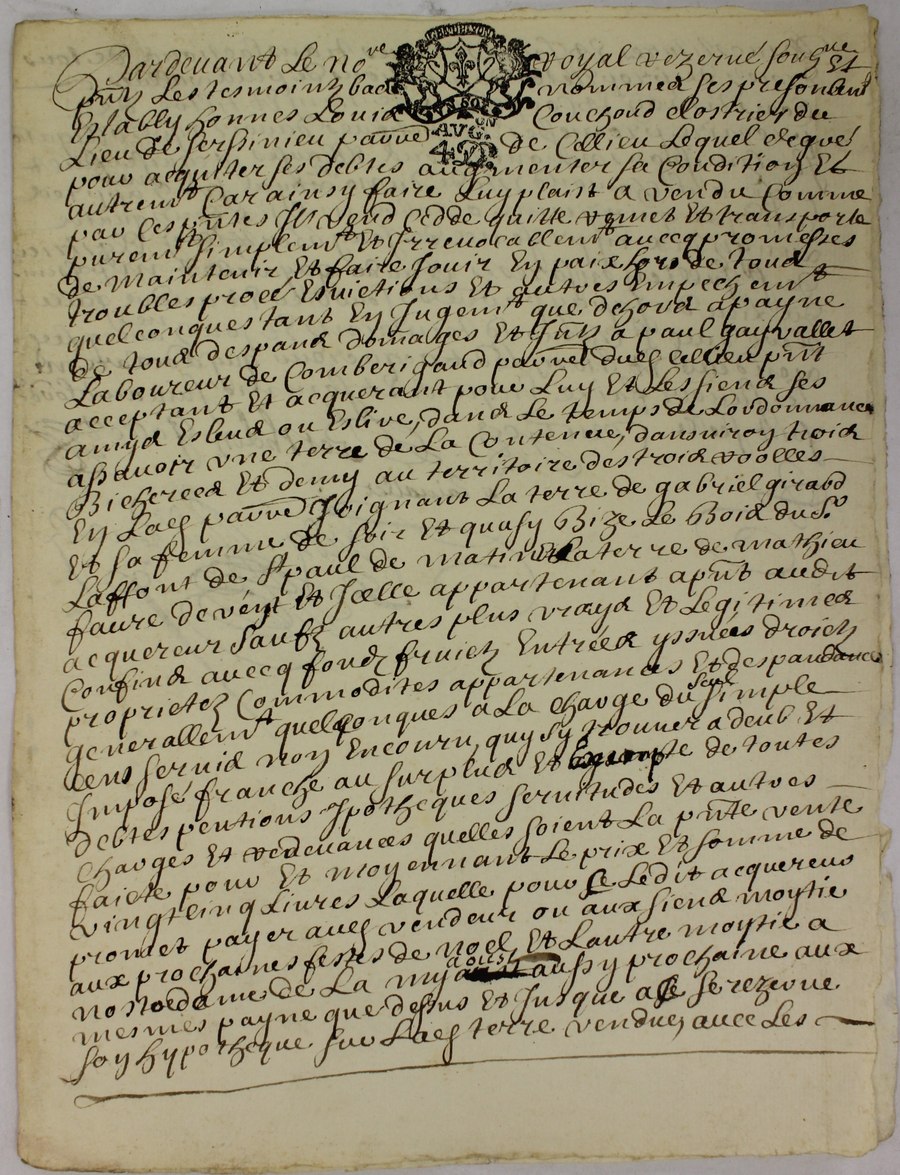 Pardeuant Le no^re Royal rezerué soub^ne Et
p̄ntz Les tesmointz bas nommes ses presonlment
Estably honnes Louis Couchoud clostrier du
Lieu de serssinieu parre de Cellieu Lequel de gré
pour acquiter ses debtes augmenter sa Condition Et
autrem^t Car ainsy faire Luy plaist a vendu Comme
par Ces p̄ntes Il vend cedde quitte remet Et transporte
purem^t simplem^t Et Irreuocallem^t auecq promesses
de maintenir Et faire Jouir En paix hors de tous
troubles proces Euictions Et autres Empechem^t
quelconques tant En Jugem^t que dehors a payne
de tous despans domages Et Jn̄tz a paul gayvallet
Laboureur de Comberigaud parre dud Cellieu p̄nt
acceptant Et acquerant pour Luy Et Les siens ses
amys Esleus ou Eslire, dans Le temps de Lordonnance
assauoir vne terre de La Contenue, dansuiron trois
Bicherees Et demy au territoire des trois voolles
En Lad parre Joignant La terre de gabriel girard
Et sa femme de soir Et quasy Bize Le Bois du S^r
Laffont de S^t paul de matin Et La terre de mathieu
faure de vent Et Icelle appartenant a p̄nt audit
acquereur saufz autres plus vrays Et Legitimes
Confins auecq fondz fruictz Entrées yssuées droictz
proprietez Commodites appartenances Et despandances
generallem^t quelqonques a La charge du seul simple
cens seruis non Encouru, quy sy trouuera deub Et
Imposé franche au surplus Et de toutes
debtes pentions Ipotheques seruitudes Et autres
charges Et redeuances quelles soient La p̄nte vente
faicte pour Et moyennant Le prix Et somme de
vingtcinq Liures Laquelle pour Ledit acquereur
promet payer aud vendeur ou aux siens moytie
aux prochaines festes de noel Et Lautre moytie a
nostredame de La my aoust aussy prochaine aux
mesmes payne que dessus Et Jusque a Ce se rezerue
son hypotheque sur Lad terre vendue, auec Les
GEN DE LYON
UN SOL
AUG^ON
4 D.